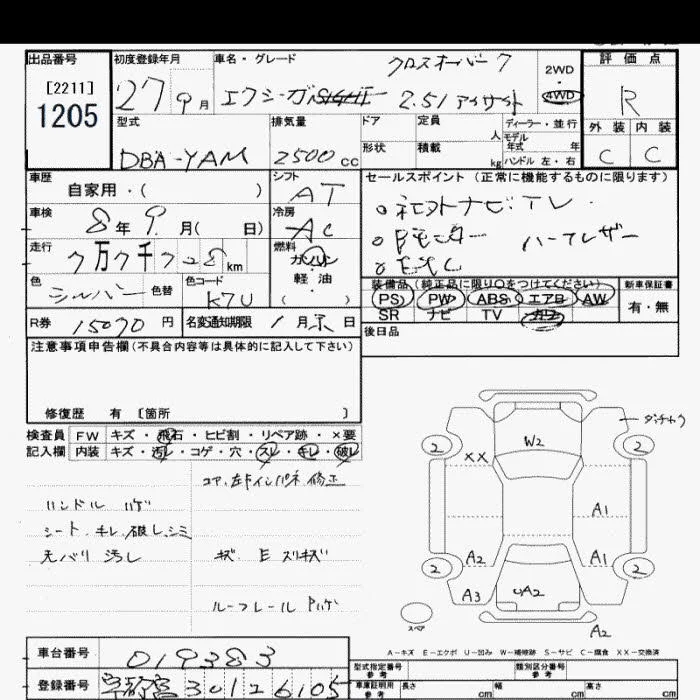 出品番号
[2211]
1205
初度登録年月
27 9月
車名・グレード
クロスオーバー7
エクシーガ 2.5i アイサイト
2WD
4WD
評価点
R
外装 内装
C C
型式
DBA-YAM
排気量
2500cc
ドア
定員
人
形状
積載
kg
ディーラー・並行
モデル
年式 年
ハンドル 左・右
車歴
自家用・( )
シフト
AT
セールスポイント(正常に機能するものに限ります)
車検
8年9月( 日)
冷房
AC
○ 社外ナビ・TV
走行
7万7千
km
燃料
ガソリン
軽油
( )
○ Bモニター ハーフレザー
○ ETC
色
シルバー
色替
色コード
K7U
装備品(純正品に限り○をつけてください)
PS PW ABS エアB AW
SR ナビ TV カワ
新車保証書
有・無
R券 15070円
名変通知期限 1月末日
後日品
注意事項申告欄(不具合内容等は具体的に記入して下さい)
修復歴 有 〔箇所 〕
検査員 FW キズ・飛石・ヒビ割・リペア跡・×要
記入欄 内装 キズ・汚レ・コゲ・穴・スレ・キレ・破レ
コア、左右インパネ修正
ハンドル ハゲ
シート、キレ、破レ、シミ
天バリ 汚レ
キズ E スリキズ
ルーフレール Pハゲ
ダメチヨウ
2 W2 2
XX
A1
A2 A1
2 2
A3 UA2
スペア
A2
A-キズ E-エクボ U-凹み W-補修跡 S-サビ C-腐食 XX-交換済
車台番号 019383
登録番号 301 2 6105
型式指定番号
参考
類別区分番号
参考
車庫証明用
参考
長さ cm 幅 cm 高さ cm